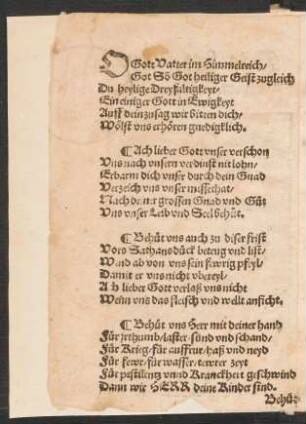 O Gott Vatter im Himmelreich/
Got Sō Got heiliger Geist zugleich
Du heylige Dreyfaltigkeyt/
Ein einiger Gott in Ewigkeyt
Auff dein zusag wir bitten dich/
Wölst vns erhören gnedigklich.
¶ Ach lieber Gott vnser verschon
Vns nach vnserm verdinst nit lohn/
Erbarm dich vnser durch dein Gnad
Verzeich vns vnser missethat/
Nach deiner grossen Gnad vnd Güt
Vns vnser Leib vnd Seel behüt.
¶ Behüt vns auch zu diser frist
Vors Sathans dück betrug vnd list/
Wend ab von vns sein fewrig pfeyl/
Damit er vns nicht vbereyl/
Ach lieber Gott verlaß vns nicht
Wenn vns das fleisch vnd wellt anficht.
¶ Behüt vns Herr mit deiner hand
Für jrthumb/laster/sünd vnd schand/
Für Krieg/für auffrur/haß vnd neyd
Für fewr/für wasser/tewrer zeyt
Für pestilentz vnnd Kranckheit geschwind
Dann wir HERR deine Kinder sind.
Behüt